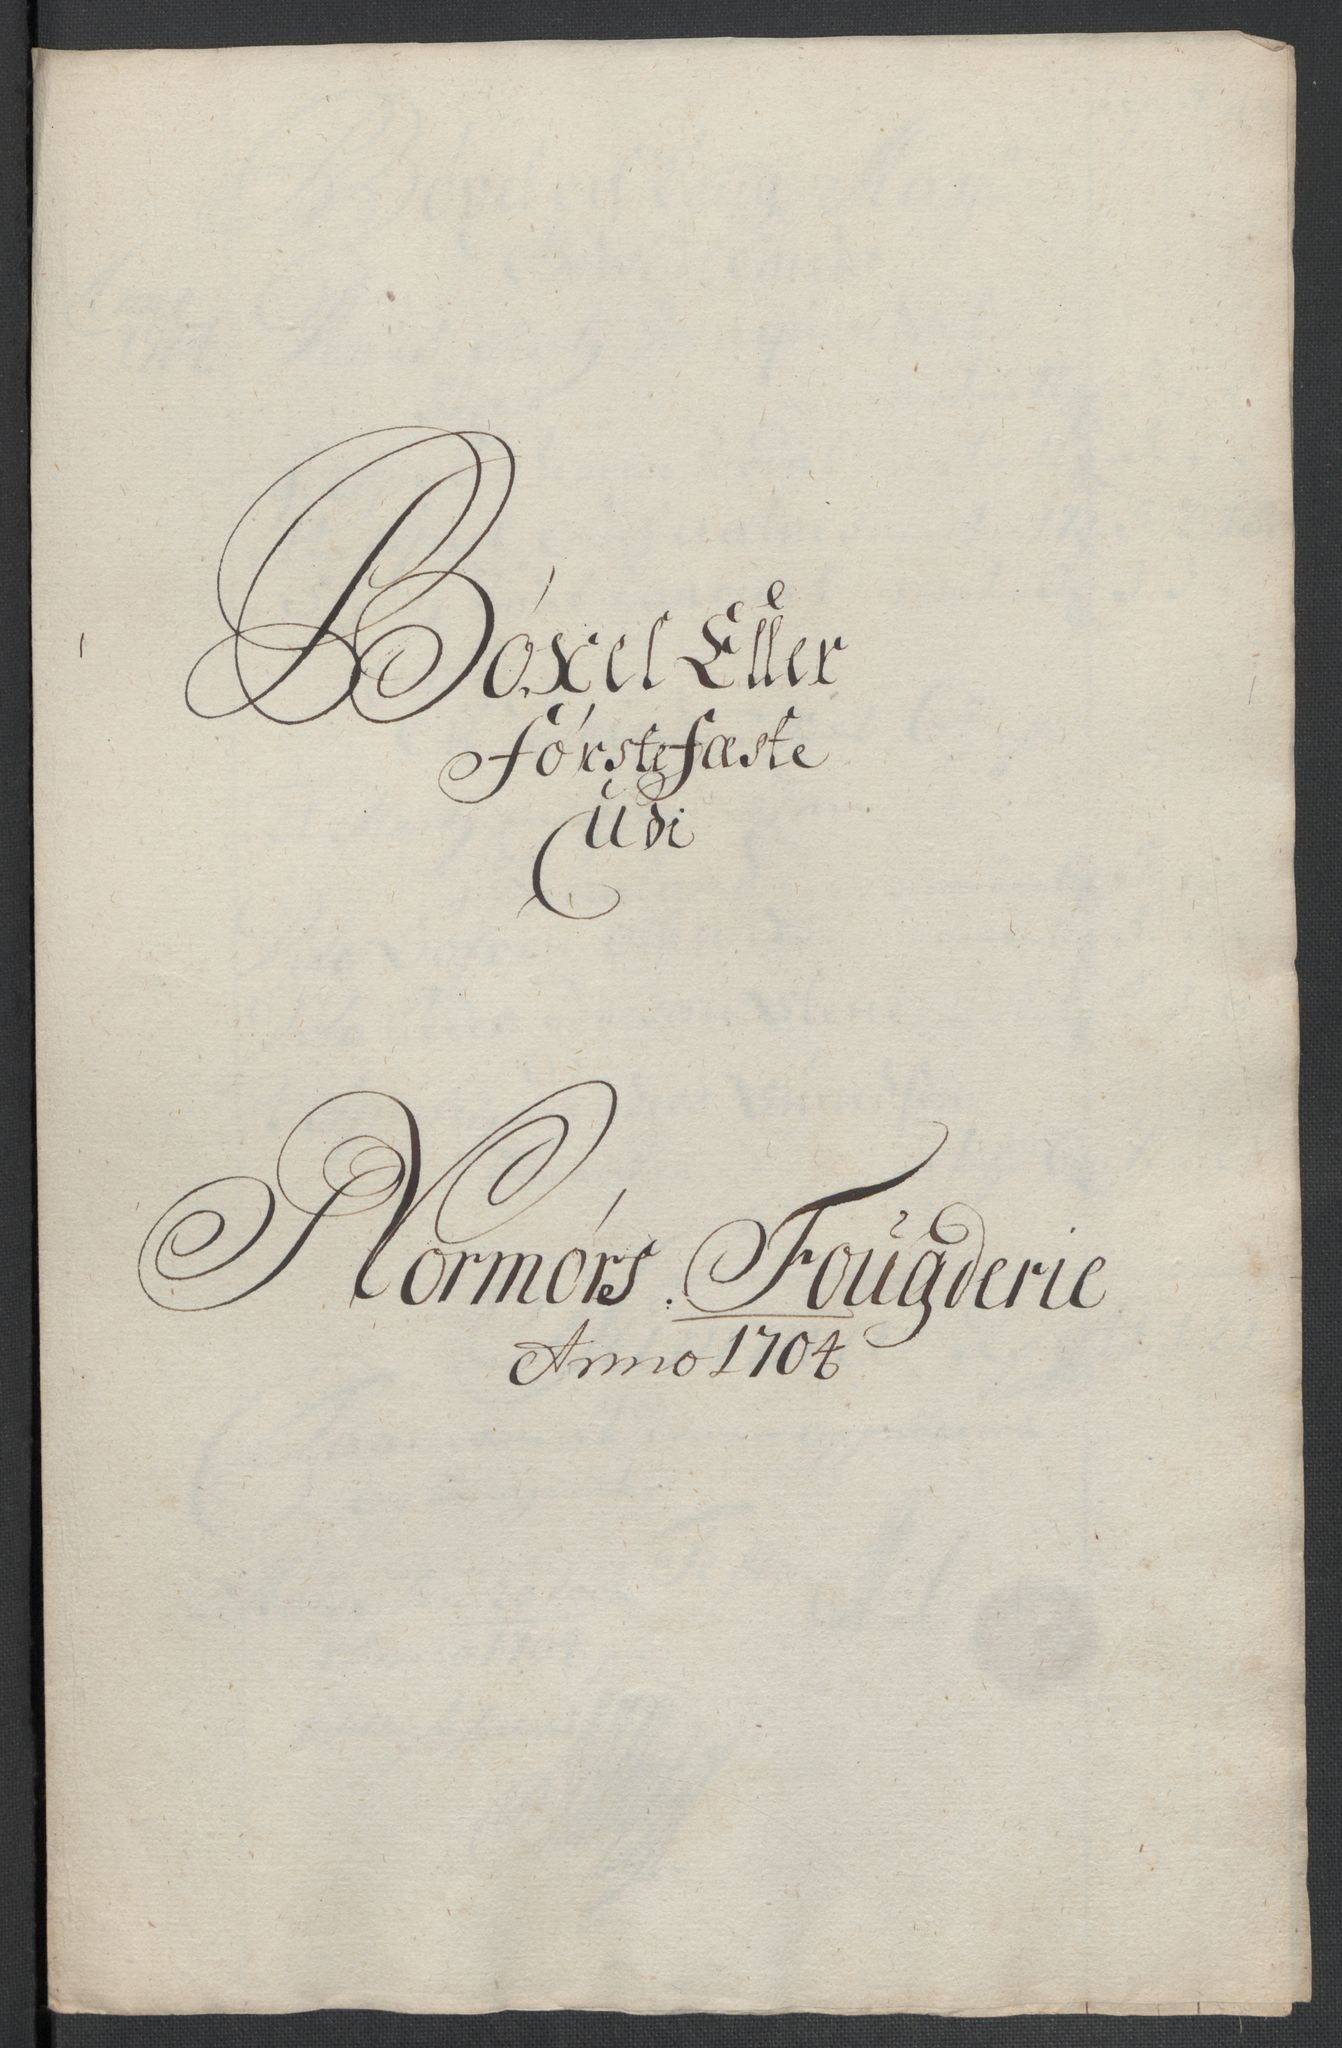 Bóxel Eller
förstefæste
Udi
Normórs Fougderie
Anno 1704